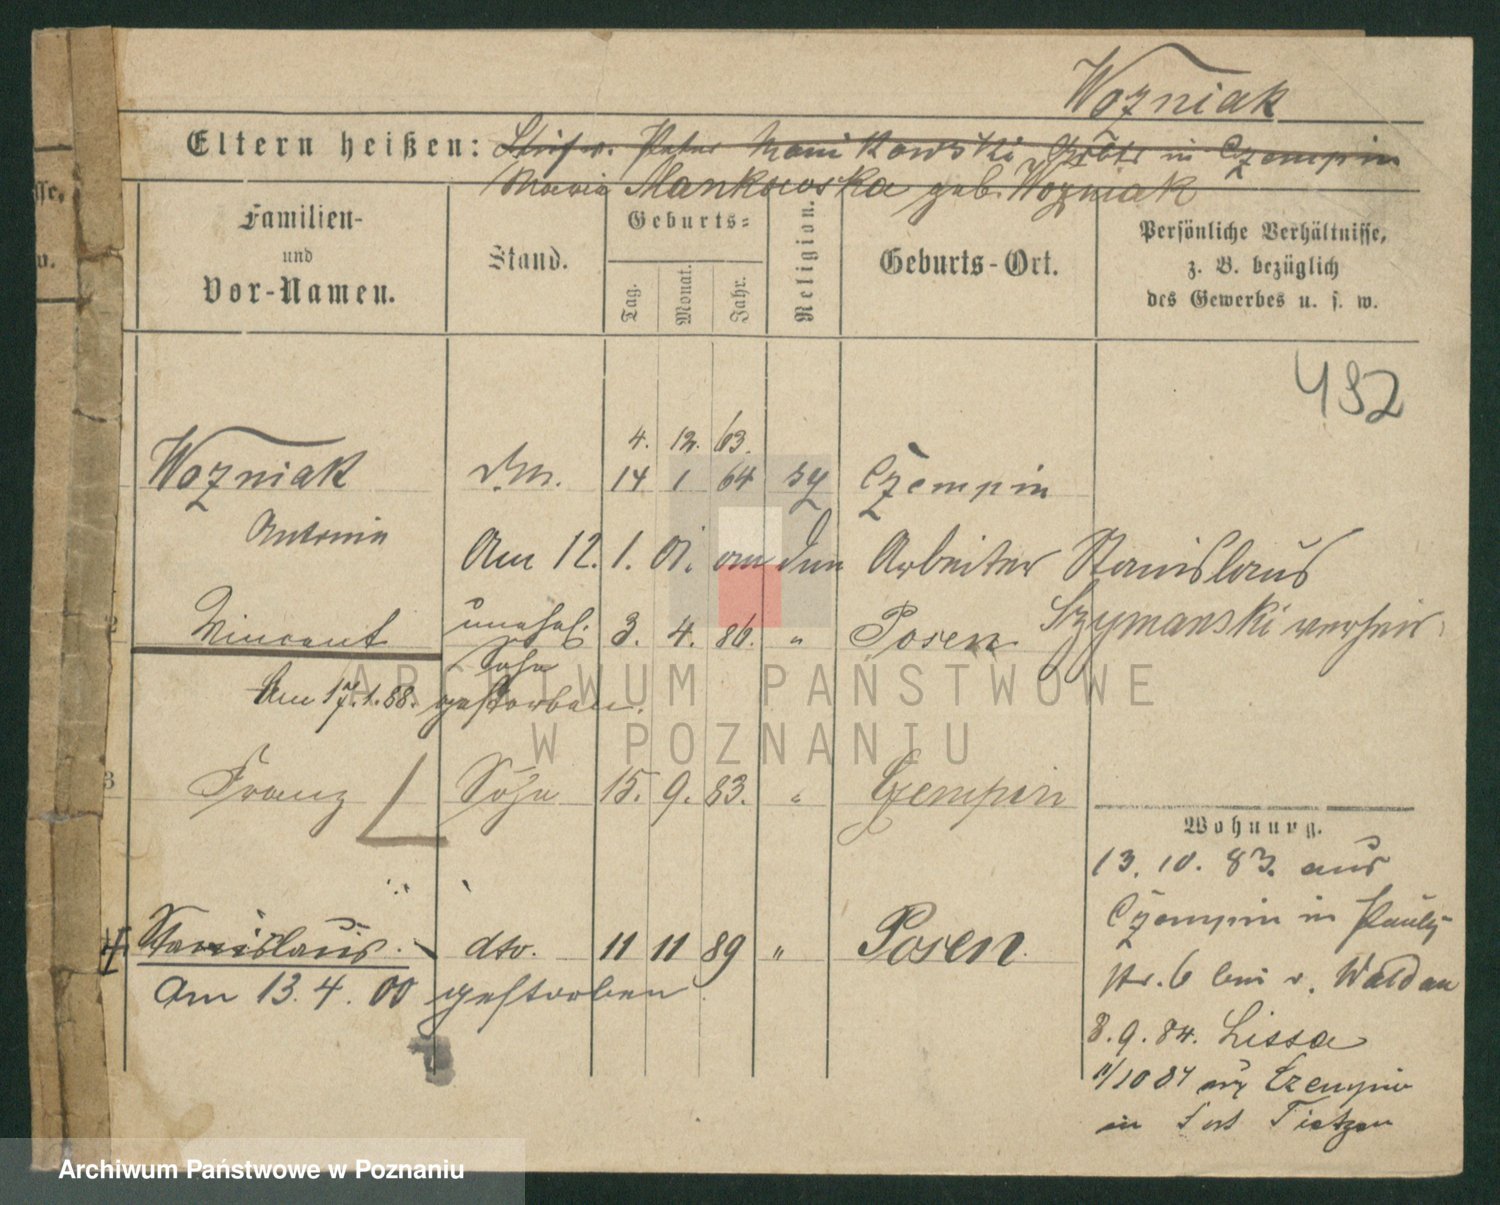 Wozniak
Eltern heißen: Peter Manikowski in Czempin
Maria Mankowska geb. Wozniak
Familien-
und
Vor-Namen.
Stand.
Geburts-
Tag.
Monat.
Jahr.
Religion.
Geburts-Ort.
Persönliche Verhältnisse,
z. B. bezüglich
des Gewerbes u. s. w.
492
4. 12. 63.
Wozniak 14 1 64 Czempin
Antonie
Am 12. 1. 01. an den Arbeiter Stanislaus
Szymanski verheir.
Vincent unehel. 3. 4. 86. " Posen
Sohn
Am 17.1.88. gestorben.
3 Franz Sohn 15. 9. 83. " Czempin
Wohnung.
13. 10. 83. aus
Czempin in Pauli
str. 6 bei v. Waldau
8. 9. 84. Lissa
11/10 84 aus Czempin
in Fort Tietzen
4 Stanislaus dto. 11 11 89 " Posen
Am 13. 4. 00 gestorben.
ARCHIWUM PAŃSTWOWE
W POZNANIU
Archiwum Państwowe w Poznaniu